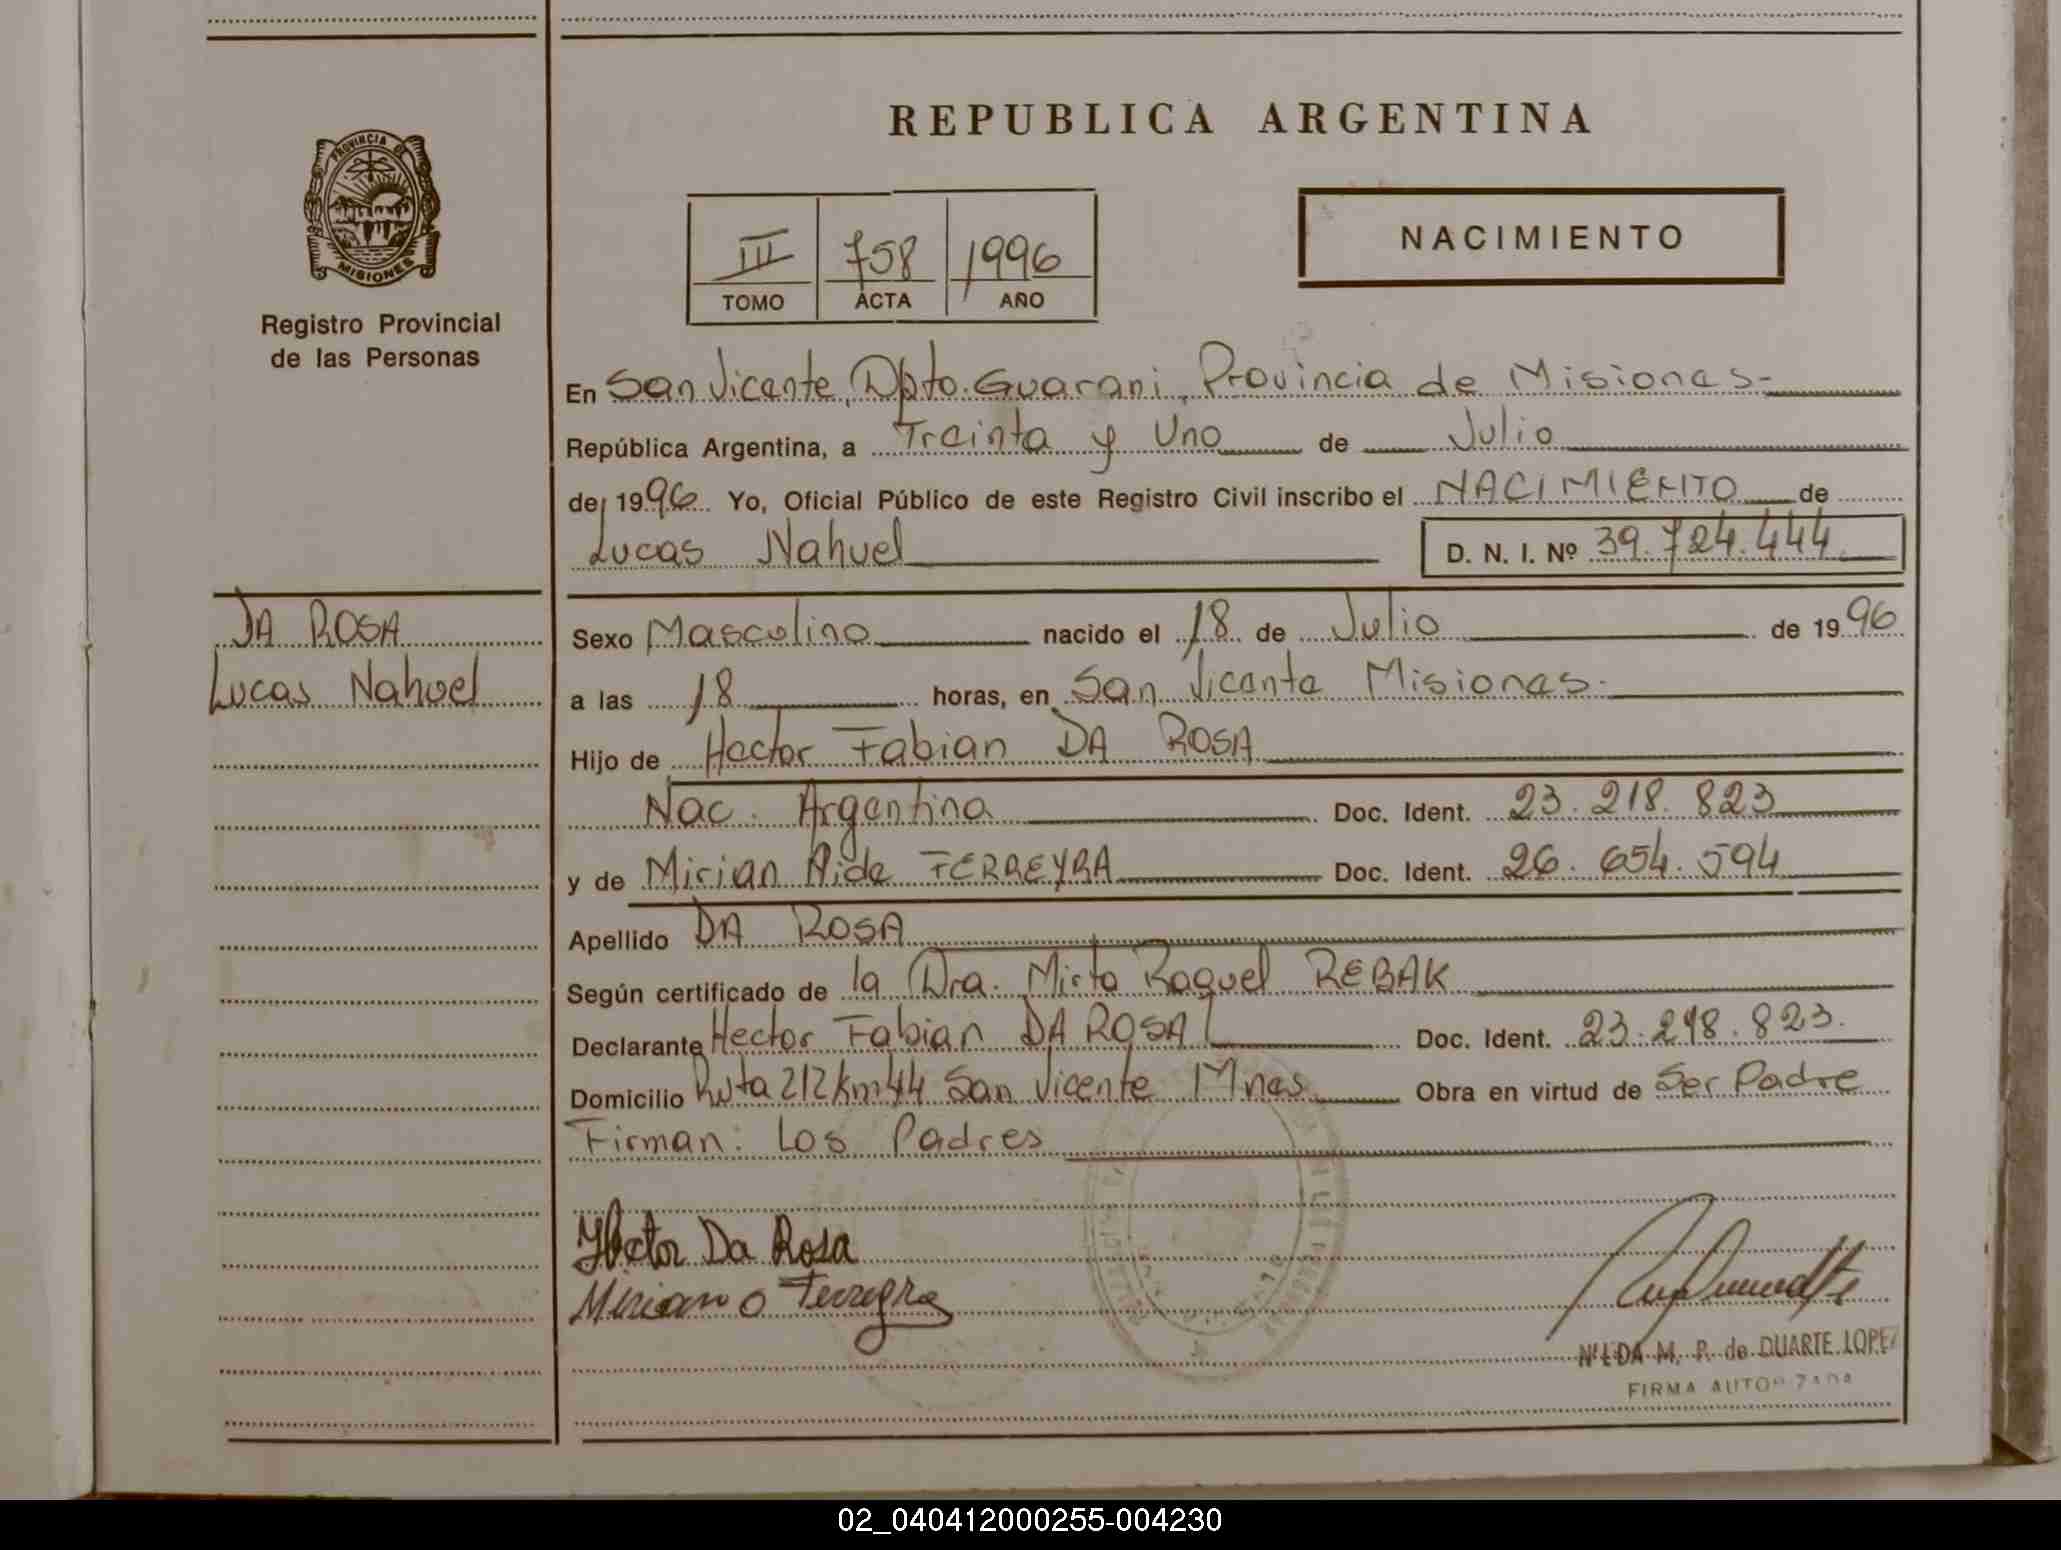 REPUBLICA ARGENTINA
PROVINCIA DE
MISIONES
Registro Provincial
de las Personas
III 758 1996
TOMO ACTA AÑO
NACIMIENTO
En San Vicente, Dpto. Guarani, Provincia de Misiones-
República Argentina, a Treinta y Uno de Julio
de 1996 Yo, Oficial Público de este Registro Civil inscribo el NACIMIENTO de
Lucas Nahuel D. N. I. Nº 39.724.444
DA ROSA
Lucas Nahuel
Sexo Masculino nacido el 18 de Julio de 1996
a las 18 horas, en San Vicente Misiones.
Hijo de Hector Fabian DA ROSA
Nac. Argentina Doc. Ident. 23.218.823
y de Mirian Aide FERREYRA Doc. Ident. 26.654.594
Apellido DA ROSA
Según certificado de la Dra. Mirta Raquel REBAK
Declarante Hector Fabian DA ROSA Doc. Ident. 23.218.823.
Domicilio Ruta 212 km 44 San Vicente Mnes Obra en virtud de Ser Padre
Firman: Los Padres
Hector Da Rosa
Mirian Ferreyra
NILDA M. P. de DUARTE LOPEZ
FIRMA AUTORIZADA
02_040412000255-004230